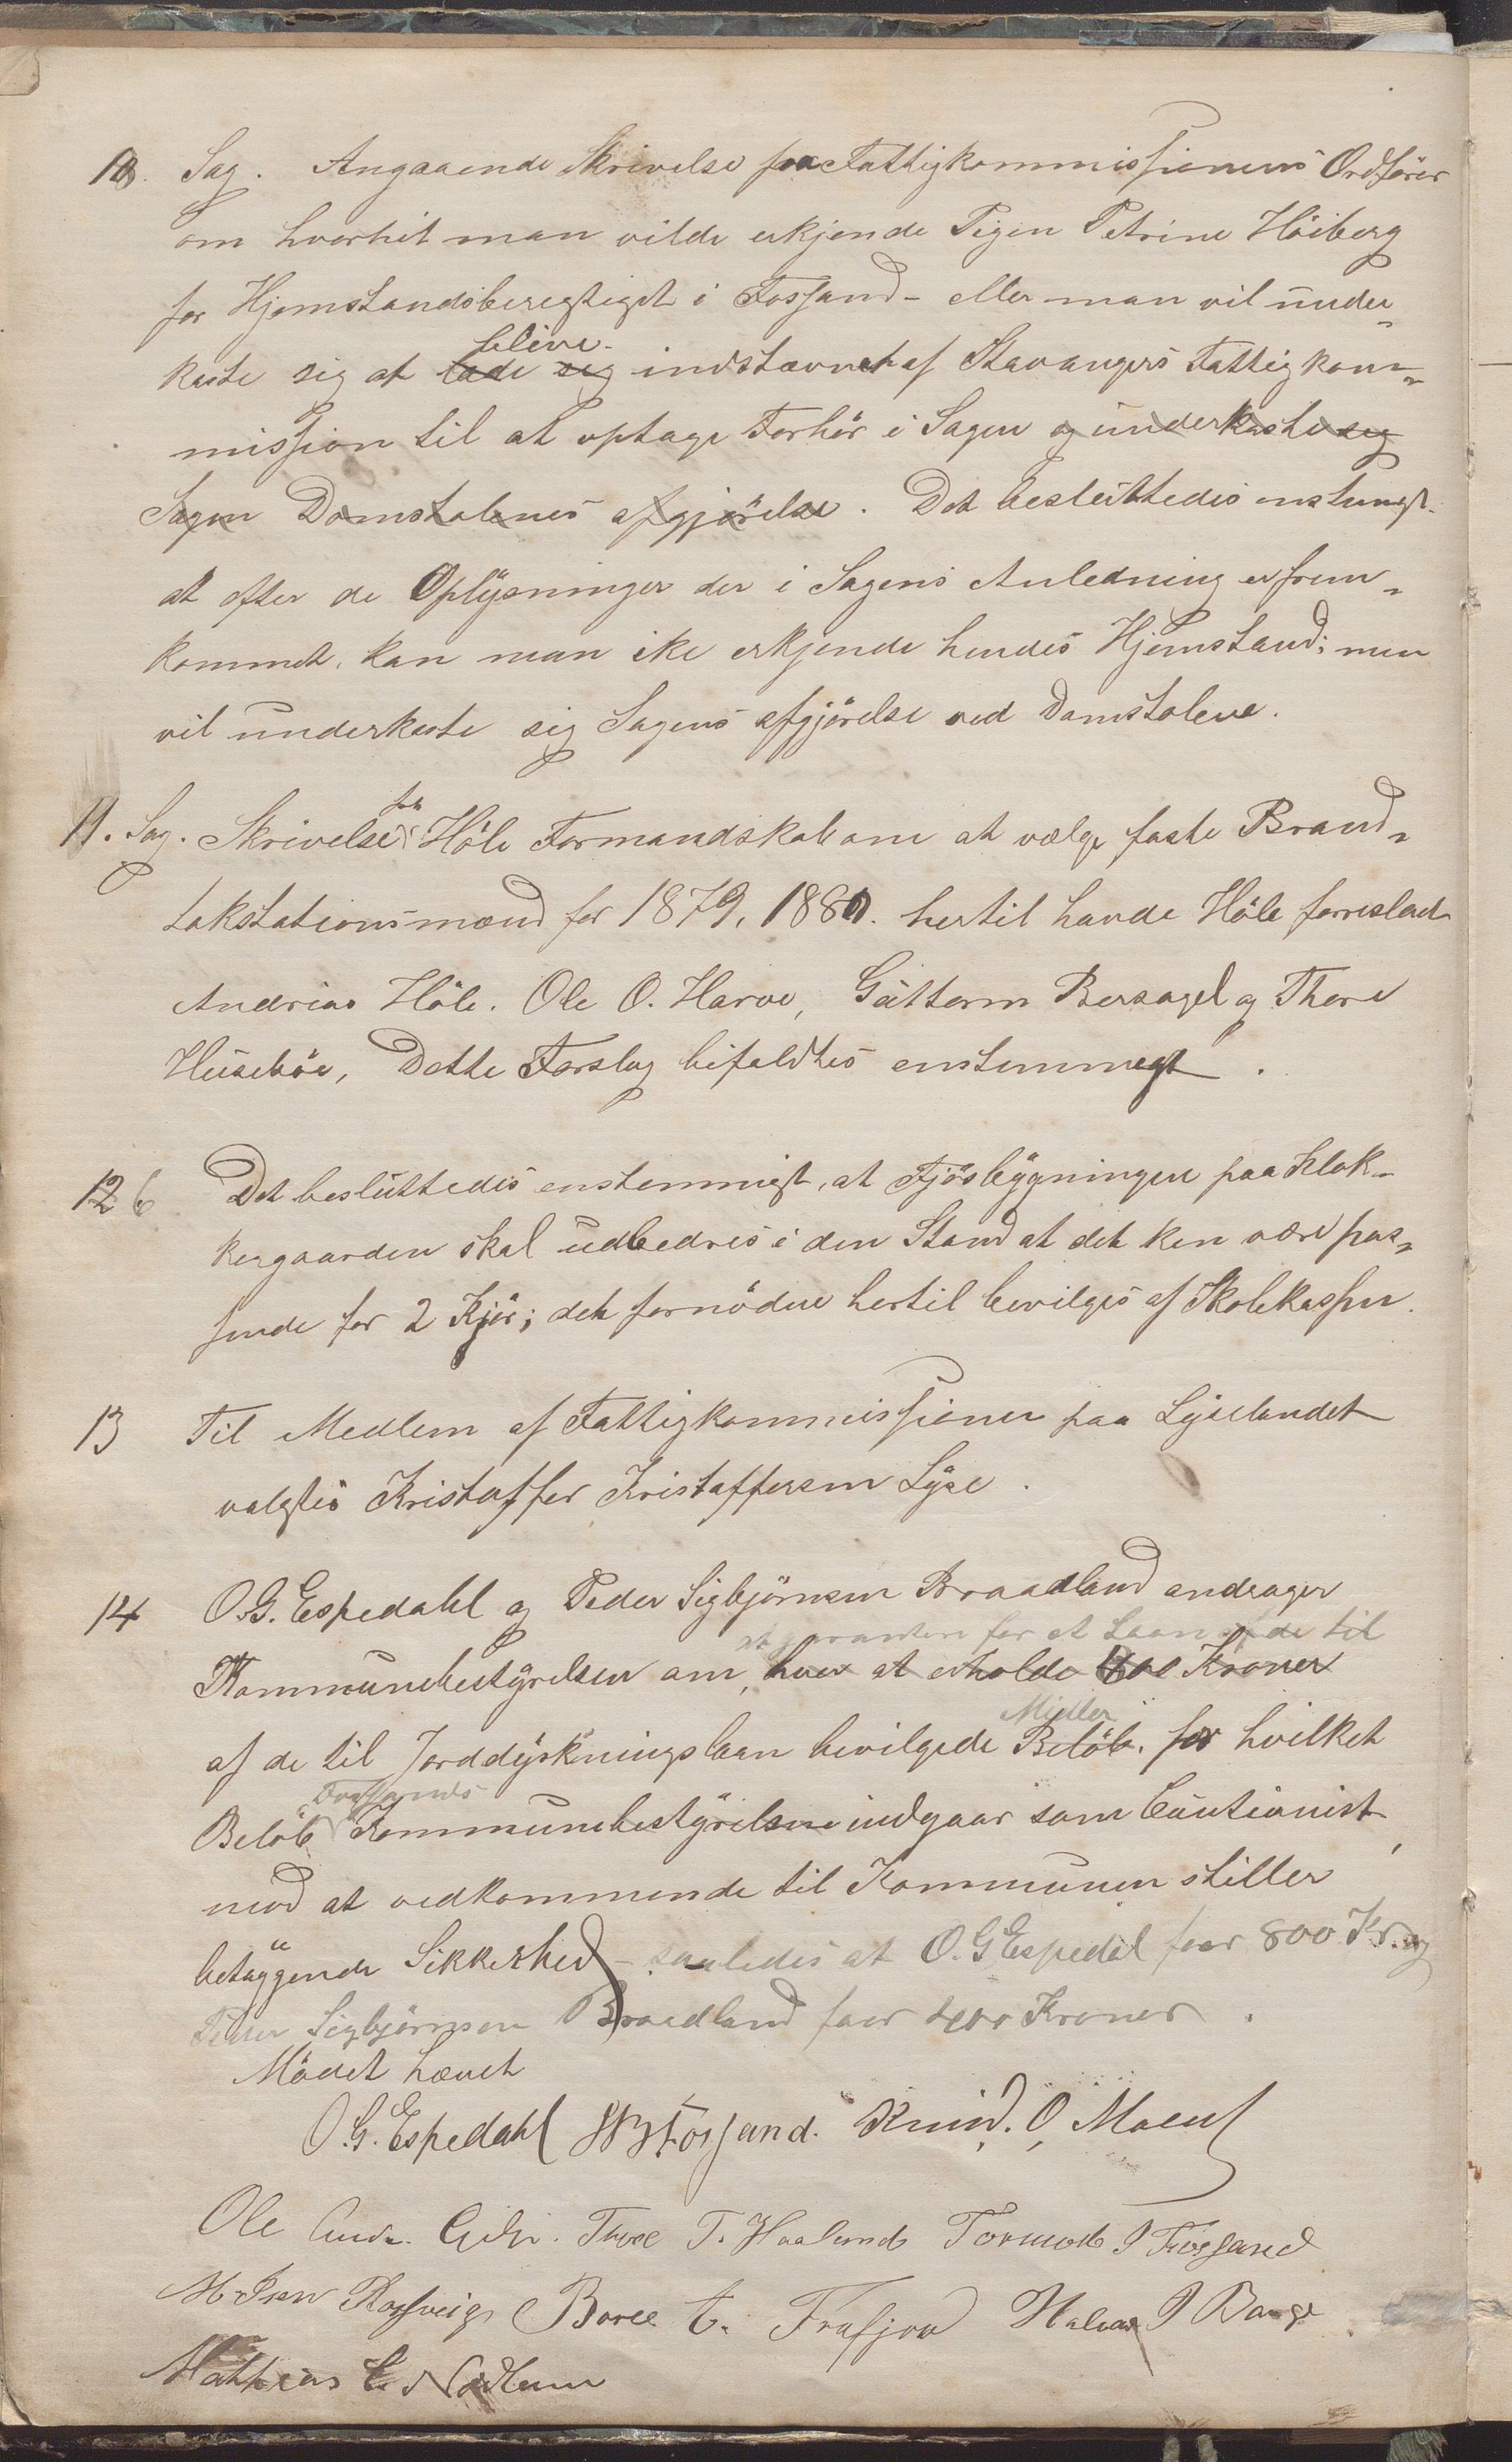 10. Sag. Angaaende Skrivelse fra Fattigkommissionens Ordförer
om hvorhit man vilde erkjende Pigen Petrine Höiberg
for Hjemstandsberegtiget i Fossand - eller man vil under„
blive
kaste sig at lade sig indstævnet af Stavangers Fattigkom„
mission til at optage Forhör i Sagen og underkaste sig
Sagen Domstolenes afgjörelse. Det besluttedes enstemigt.
at efter de Oplysninger der i Sagens Anledning er frem„
kommet, kan man ike erkjende hendes Hjemstand; men
vil underkaste sig Sagens afgjörelse ved Domstolene.
fra
11. Sag. Skrivelse i Höle Formandskab om at vælge faste Brand„
takstationsmænd for 1879, 1880. hertil havde Höle forreslaed
Andrias Höle. Ole O. Harve, Guttorm Bersagel og Thore
Huseböe, Dette Forslag bifaldtes enstemmegt.
12 6 Det besluttedes enstemmigt, at Fjösbygningen paa Klok„
kergaarden skal udbedres i den Stand at det kan være pas„
sende for 2 Kjör; det fornödne hertil bevilges af Skolekassen.
13 Til Medlem af Fattigkommissionen paa Lyselandet
valgtes Kristoffer Kristoffersen Lyse.
14 O. G. Espedahl og Peder Sigbjörnsen Braadland andrager
at garantere for et Laan til
Kommunebestyrelsen om, hver at erholde 600 Kroner
Midler
af de til Jorddyrkningslaan bevilgede Belöb. for hvilket
Fossands
Belöb Kommunebestyrelsen indgaar som Cautionist,
mod at vedkommende til Kommunen stiller
betryggende Sikkerhed - saaledes at O. G Espedal faar 800 Kr. og
Peder Sigbjörnsen Braadland faar 400 Kroner.
Mödet hævet
O. G. Espedahl Fossand. Knud. O, Moen
Ole Andr. Eiken. Thore T. Haaland Tormod Fossand
Rossavig Boree C. Frafjord Halvar Barge
Mathias